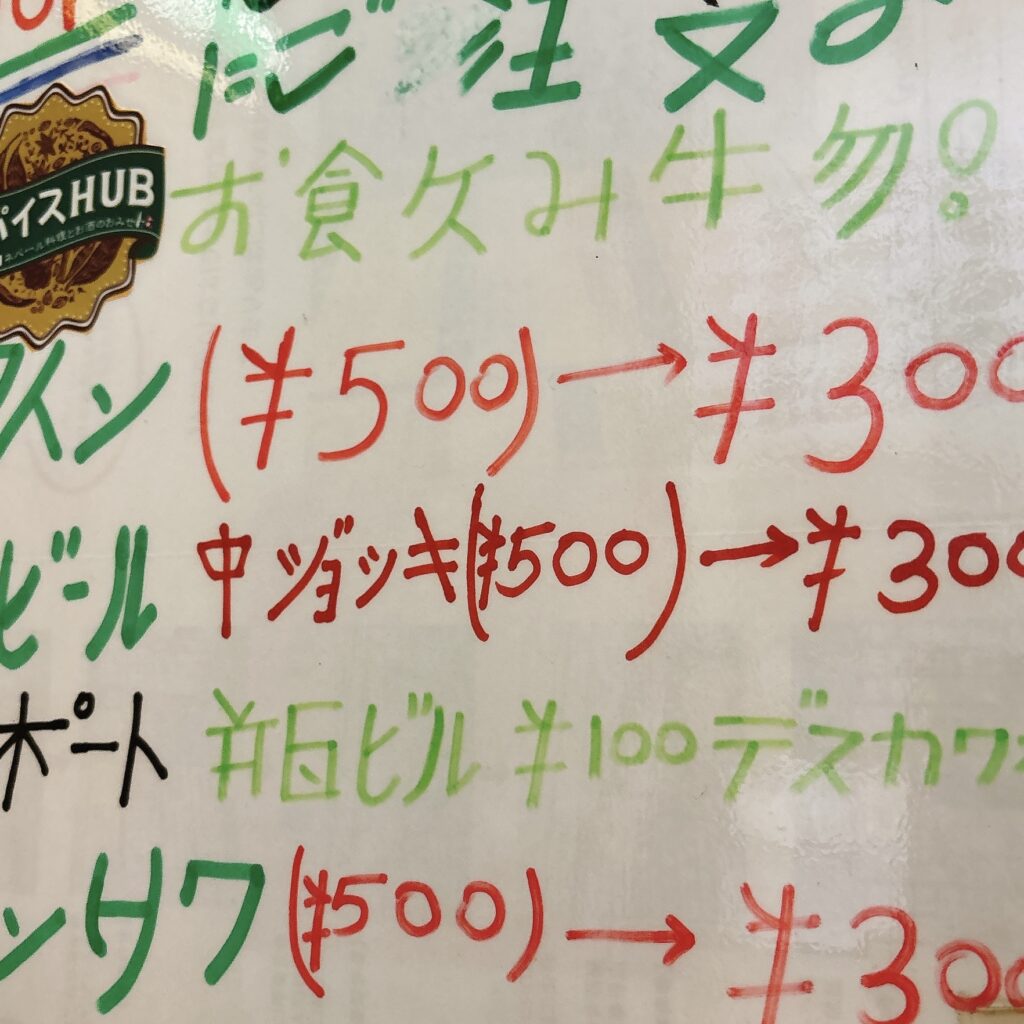 ご注文
お食欠み牛勿!
パイスHUB
ネパール料理とお酒のおみせ
ワイン (¥500)→¥300
ビール 中ジョッキ(¥500)→¥300
ポート ¥百ビル ¥100デスカワ
ンサワ (¥500)→¥300